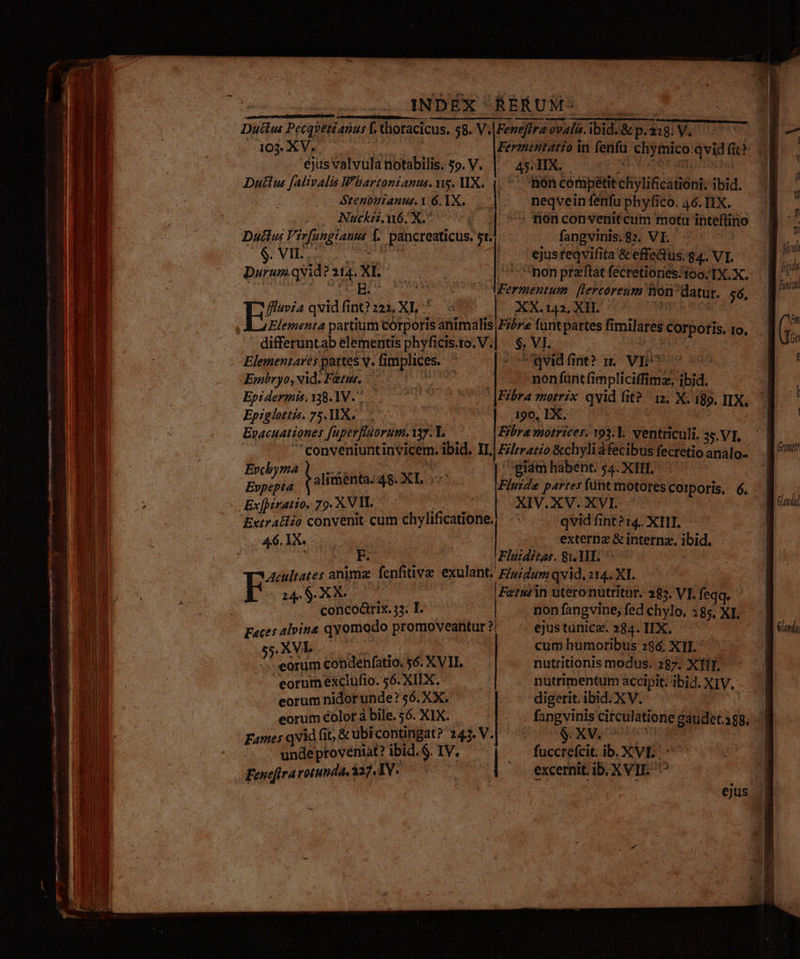 INDEX RERUM
Ductus Pecqvetianus f. thoracicus. 58. V.
103. XV.
ejus valvula notabilis. 59. V.
Ductus salivalis Whartonianus. 115. IIX.
Stenonianus. 116. IX.
Nuckii. 116. X.
Ductus Virsungianus f. pancreaticus. 51.
§. VII.
Durum qvid? 214. XI.
E.
Effluvia qvid sint? 222. XI.
Elementa partium corporis animalis
differunt ab elementis physicis. 10. V.
Elementares partes v. simplices.
Embryo, vid. Fœtus.
Epidermis. 138. IV.
Epiglottis. 75. IIX.
Evacuationes superfluorum. 137. I.
conveniunt invicem. ibid. II.
Evchyma
Evpepta alimenta. 48. XI.
Exspiratio. 79. XVII.
Extractio convenit cum chylificatione.
46. IX.
F.
Facultates animæ sensitivæ exulant.
14. §. XX.
concoctrix. 33. I.
Faces alvinæ qvomodo promoveantur?
55. XVI.
eorum condensatio. 56. XVII.
eorum exclusio. 56. XIIX.
eorum nidor unde? 56. XX.
eorum color à bile. 56. XIX.
Fames qvid sit, & ubi contingat? 243. V.
unde proveniat? ibid. §. IV.
Fenestra rotunda. 227. IV.
Fenestra ovalis. ibid. & p. 228. V.
Fermentatio in sensu chymico qvid sit?
45. IIX.
non competit chylificationi. ibid.
neqve in sensu physico. 46. IIX.
non convenit cum motu intestino
sangvinis. 82. VI.
ejus reqvisita & effectus. 84. VI.
non præstat secretiones. 100. IX. X.
Fermentum stercoreum non datur. 56.
XX. 142. XII.
Fibræ sunt partes similares corporis. 10.
§. VI.
qvid sint? 11. VII
non sunt simplicissimæ. ibid.
Fibra motrix qvid sit? 12. X. 189. IIX.
190. IX.
Fibræ motrices. 193. I. ventriculi. 35. VI.
Filtratio & chyli à fecibus secretio analo-
giam habent. 54. XIII.
Fluidæ partes sunt motores corporis. 6.
XIV. XV. XVI.
qvid sint? 14. XIII.
externæ & internæ. ibid.
Fluiditas. 81. III.
Fluidum qvid. 214. XI.
Fœtus in utero nutritur. 283. VI. seqq.
non sangvine, sed chylo. 285. XI.
ejus tunicæ. 284. IIX.
cum humoribus 286. XII.
nutritionis modus. 287. XIII.
nutrimentum accipit. ibid. XIV.
digerit. ibid. XV.
sangvinis circulatione gaudet. 288.
§. XV.
succrescit. ib. XVI.
excernit. ib. XVII.
ejus